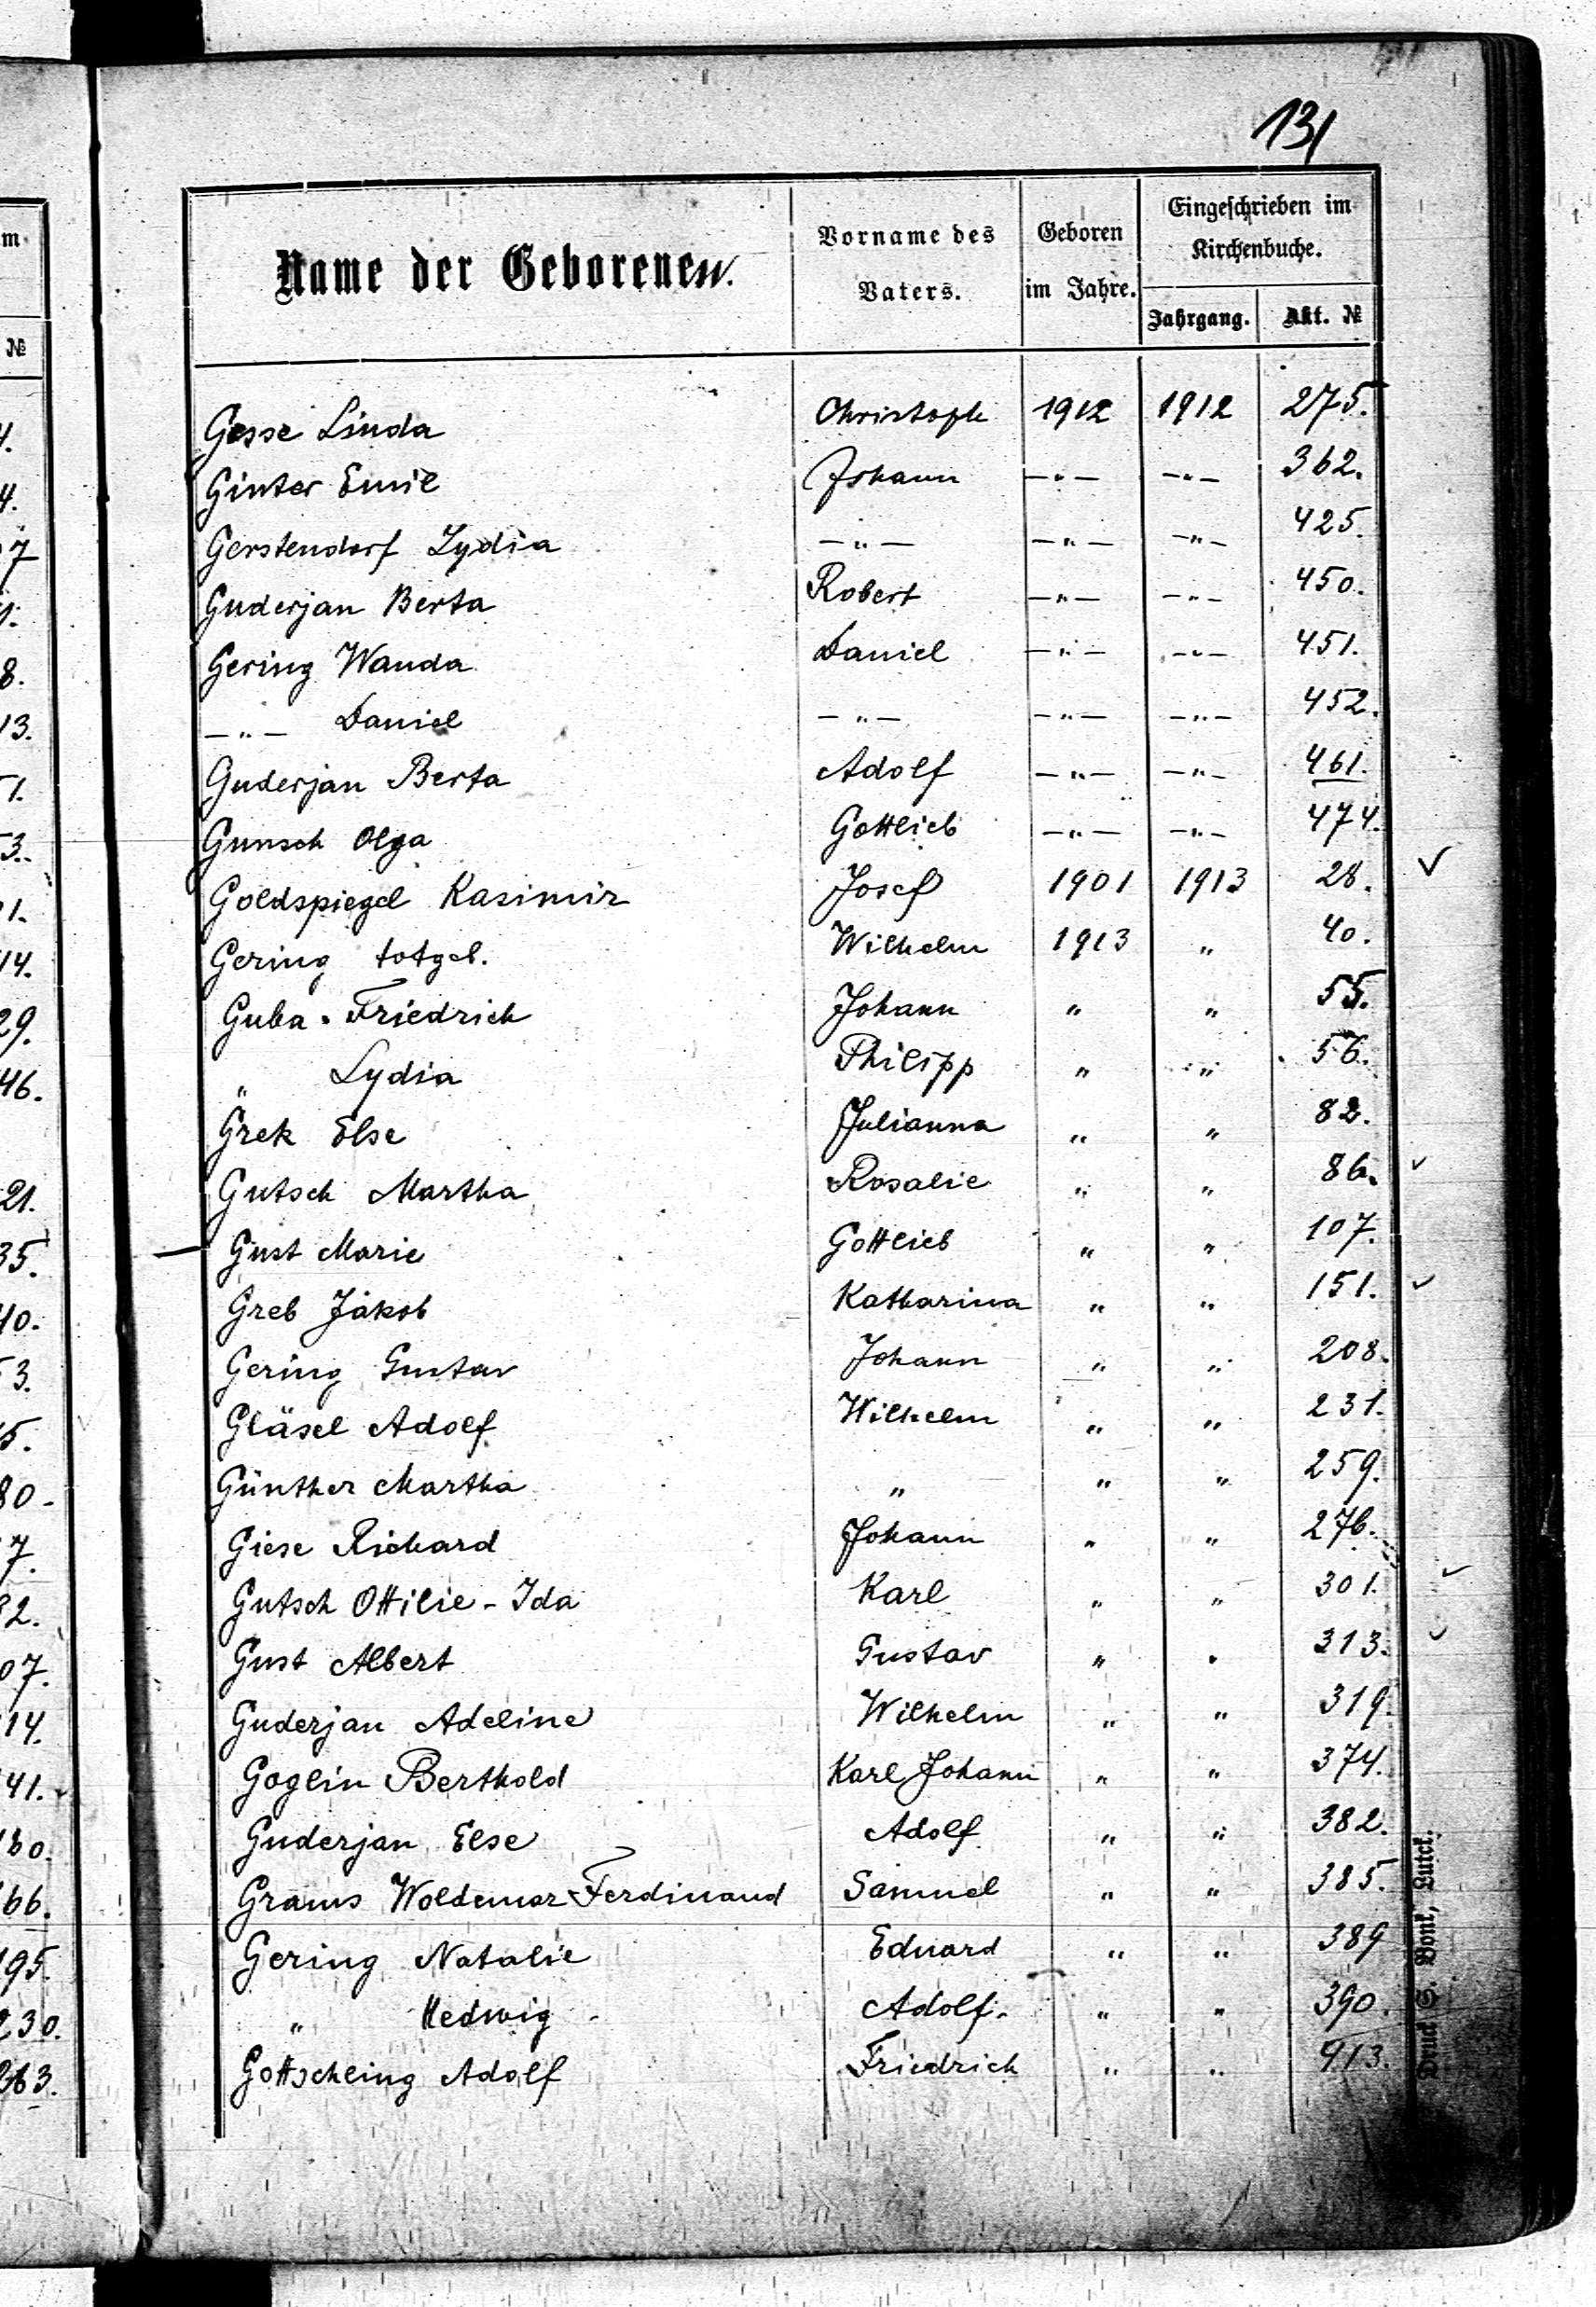 131
Name der Geborenen.
Vorname des Vaters.
Geboren im Jahre.
Eingeschrieben im Kirchenbuche.
Jahrgang. Akt. №
Gesse Linda Christoph 1912 1912 275.
Ginter Emil Johann —"— —"— 362.
Gerstendorf Lydia —"— —"— —"— 425.
Guderjan Berta Robert —"— —"— 450.
Gering Wanda Daniel —"— —"— 451.
—"— Daniel —"— —"— —"— 452.
Guderjan Berta Adolf —"— —"— 461.
Gunsch Olga Gottlieb —"— —"— 474.
Goldspiegel Kasimir Josef 1901 1913 28. ✓
Gering totgeb. Wilhelm 1913 " 40.
Guba. Friedrich Johann " " 55.
" Lydia Philipp " " 56.
Grek Else Julianna " " 82.
Gutsch Martha Rosalie " " 86. ✓
— Gust Marie Gottlieb " " 107.
Greb Jakob Katharina " " 151. ✓
Gering Gustav Johann " " 208.
Gläsel Adolf Wilhelm " " 231.
Günther Martha " " " 259.
Giese Richard Johann " " 276.
Gutsch Ottilie-Ida Karl " " 301. ✓
Gust Albert Gustav " " 313. ✓
Guderjan Adeline Wilhelm " " 319.
Goglin Berthold Karl Johann " " 374.
Guderjan Else Adolf " " 382.
Grams Woldemar-Ferdinand Samuel " " 385.
Gering Natalie Eduard " " 389
" Hedwig Adolf. " " 390.
Gottschling Adolf Friedrich " " 413.
Druck S. Bonk, Lutck.